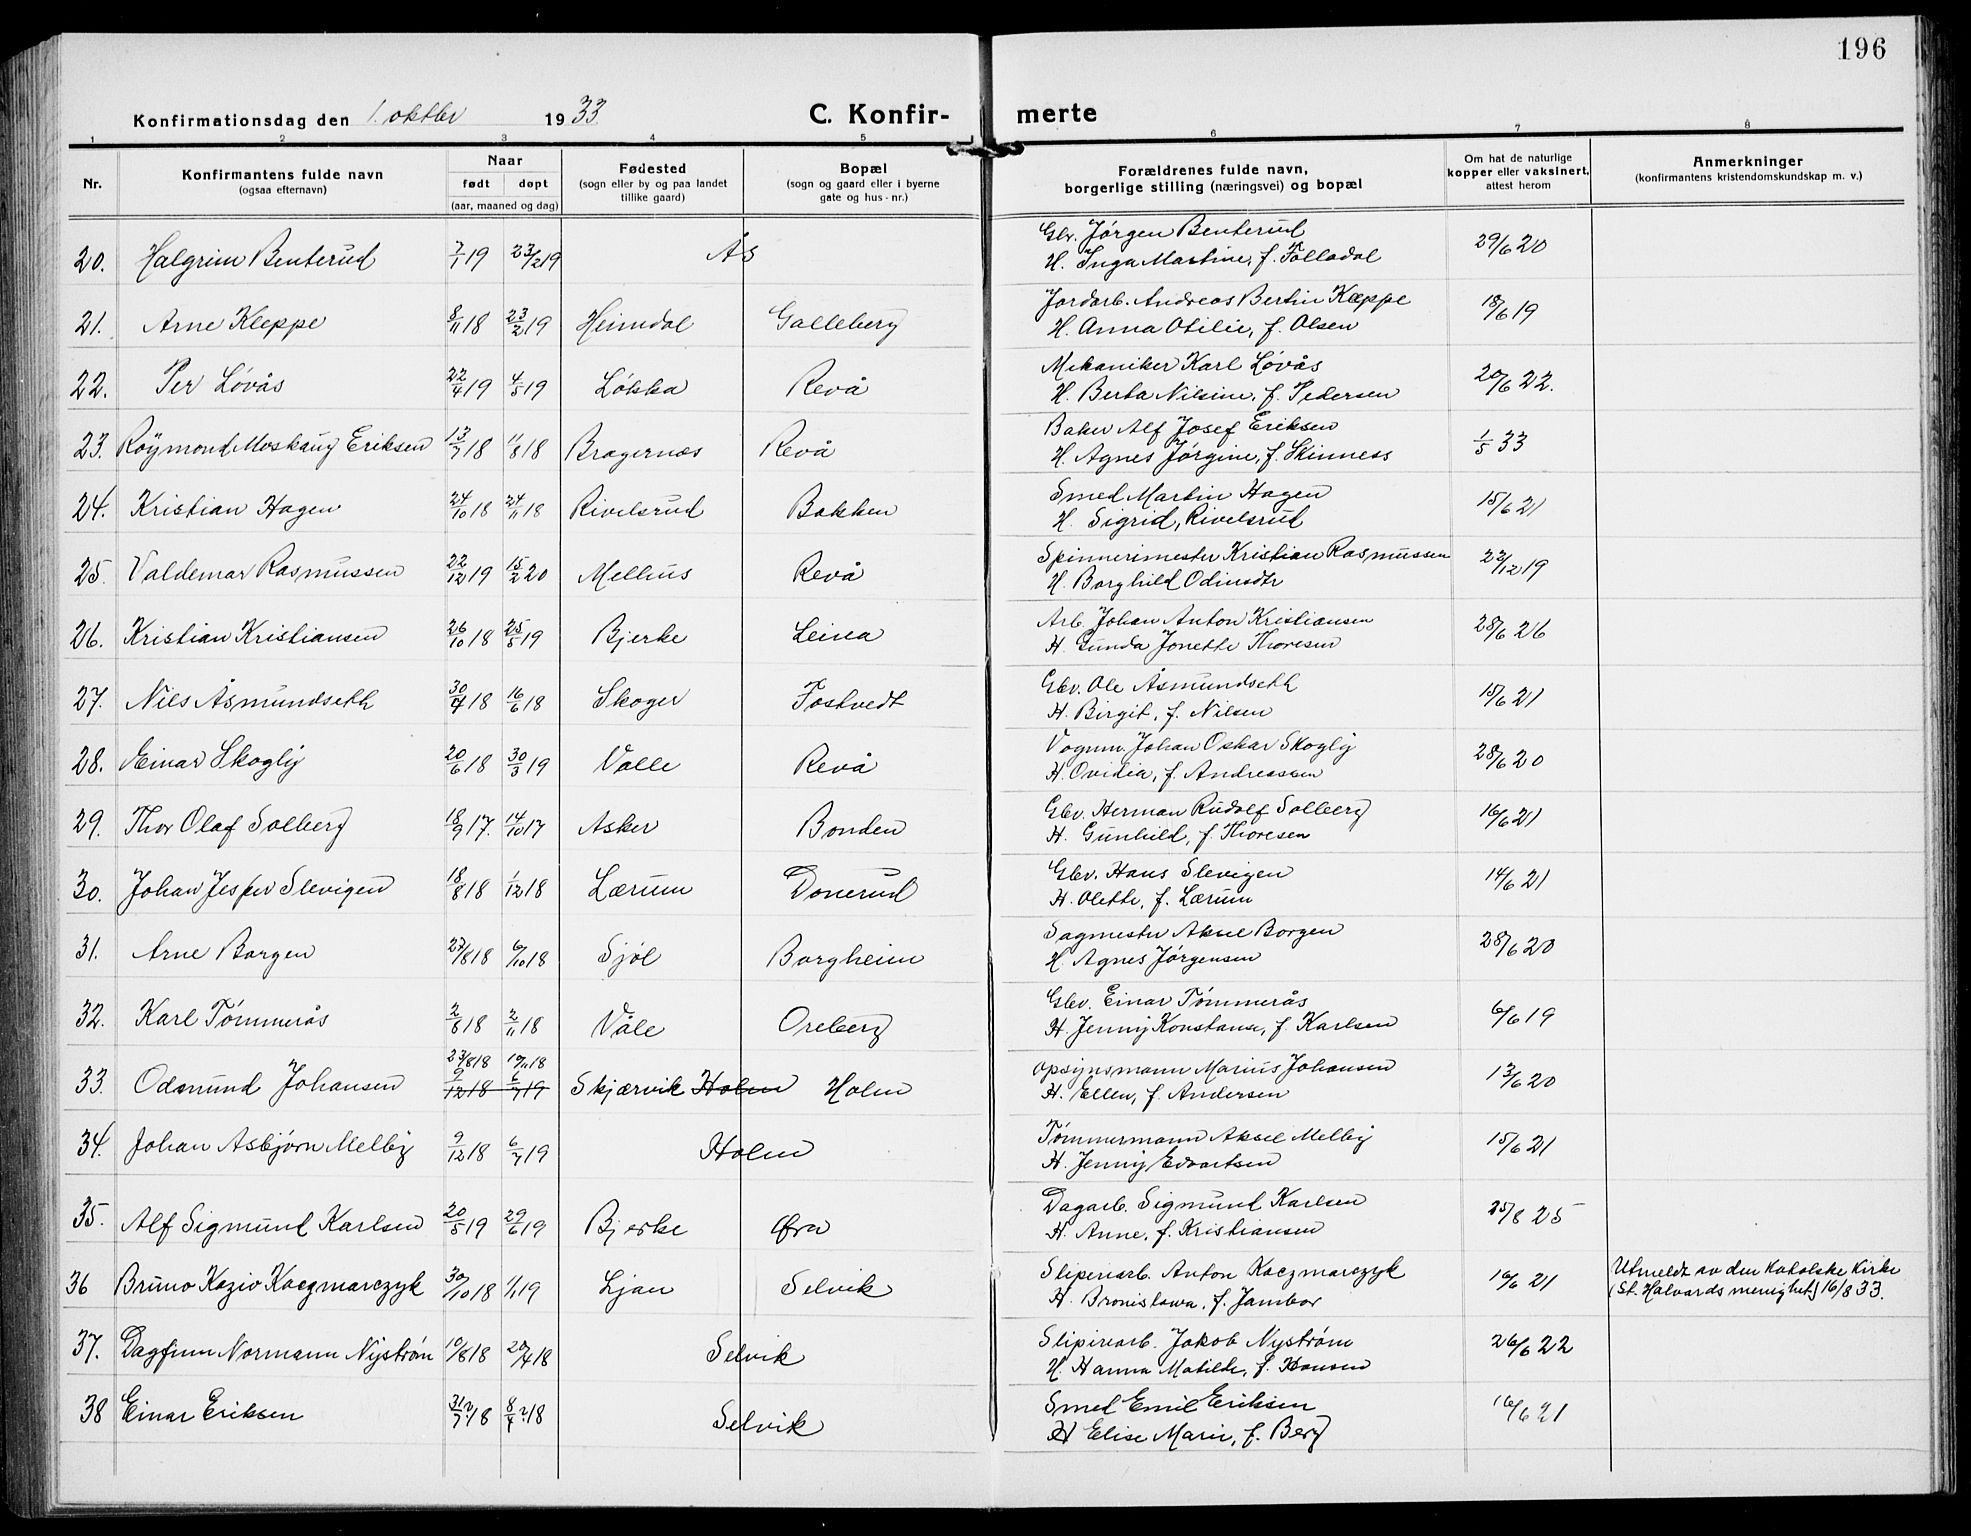 196
Konfirmationsdag den 1. oktbr 1933
C. Konfirmerte
1 2 3 4 5 6 7 8
Nr.
Konfirmantens fulde navn
(ogsaa efternavn)
Naar
født døpt
(aar, maaned og dag)
Fødested
(sogn eller by og paa landet
tillike gaard)
Bopæl
(sogn og gaard eller i byerne
gate og hus-nr.)
Forældrenes fulde navn,
borgerlige stilling (næringsvei) og bopæl
Om hat de naturlige
kopper eller vaksinert,
attest herom
Anmerkninger
(konfirmantens kristendomskundskap m. v.)
20. Halgrim Benterud 7/1 19 23/2 19 Ås Gbr. Jørgen Benterud 29/6 20
H. Inga Martine, f. Folladal
21. Arne Kleppe 8/11 18 23/2 19 Heimdal Galleberg Jordarb. Andreas Bertin Kleppe 18/6 19
H. Anna Otilie, f. Olsen
22. Per Løvås 22/4 19 4/5 19 Løkka Revå Mekaniker Karl Løvås 20/6 22.
H. Berta Nilsine, f. Pedersen
23. Roymond Moskaug Eriksen 13/7 18 11/8 18 Bragernæs Revå Baker Alf Josef Eriksen 1/5 33
H. Agnes Jørgine, f. Skinness
24. Kristian Hagen 24/10 18 24/11 18 Rivelsrud Bakken Smed Martin Hagen 15/6 21
H. Sigrid, Rivelsrud
25. Valdemar Rasmussen 22/12 19 15/2 20 Mellius Revå Spinnerimester Kristian Rasmussen 22/12 19
H. Borghild Odinsdtr
26. Kristian Kristiansen 26/10 18 25/5 19 Bjerke Leina Arb. Johan Anton Kristiansen 28/6 26
H. Gunda Jonette Thoresen
27. Nils Åsmundseth 30/4 18 16/6 18 Skoger Fostvedt Gbr. Ole Åsmundseth 15/6 21
H. Birgit, f. Nilsen
28. Einar Skogly 20/6 18 30/3 19 Valle Revå Vognm. Johan Oskar Skogly 28/6 20
H. Ovidia, f. Andreassen
29. Thor Olaf Solberg 18/9 17. 14/10 17 Asker Bonden Gbr. Herman Rudolf Solberg 16/6 21
H. Gunhild, f. Thoresen
30. Johan Jesper Slevigen 18/8 18 1/12 18 Lærum Donerud Gbr. Hans Slevigen 14/6 21
H. Olette, f. Lærum
31. Arne Borgen 27/8 18 6/10 18 Sjøl Borgheim Sagmester Aksel Borgen 28/6 20
H. Agnes Jørgensen
32. Karl Tømmerås 2/8 18 2/11 18 Våle Oreberg Gbr. Einar Tømmerås 6/6 19
H. Jenny Konstanse, f. Karlsen
23/8 18 10/11 18
33. Odmund Johansen 9/12 18 6/7 19 Skjærvik Holm Holm Opsynsmann Marius Johansen 13/6 20
H. Ellen, f. Andersen
34. Johan Asbjørn Melby 9/12 18 6/7 19 Holm Tømmermann Aksel Melby 15/6 21
H. Jenny Edvartsen
35. Alf Sigmund Karlsen 20/5 19 29/6 19 Bjerke Øra Dagarb. Sigmund Karlsen 25/8 25
H. Anne, f. Kristiansen
36 Bruno Kazio Kaczmarczyk 30/10 18 1/1 19 Ljan Selvik Sliperiarb. Anton Kaczmarczyk 16/6 21 Utmeldt av den katolske kirke
H. Bronislawa, f. Jambor (St. Halvards menighet) 16/8 33.
37. Dagfinn Normann Nystrøm 10/8 18 Selvik Sliperiarb. Jakob Nystrøm 26/6 22
H. Hanna Matilde, f. Hansen
38 Einar Eriksen Selvik Smed Emil Eriksen 16/6 21
H Elise Marie, f. Berg